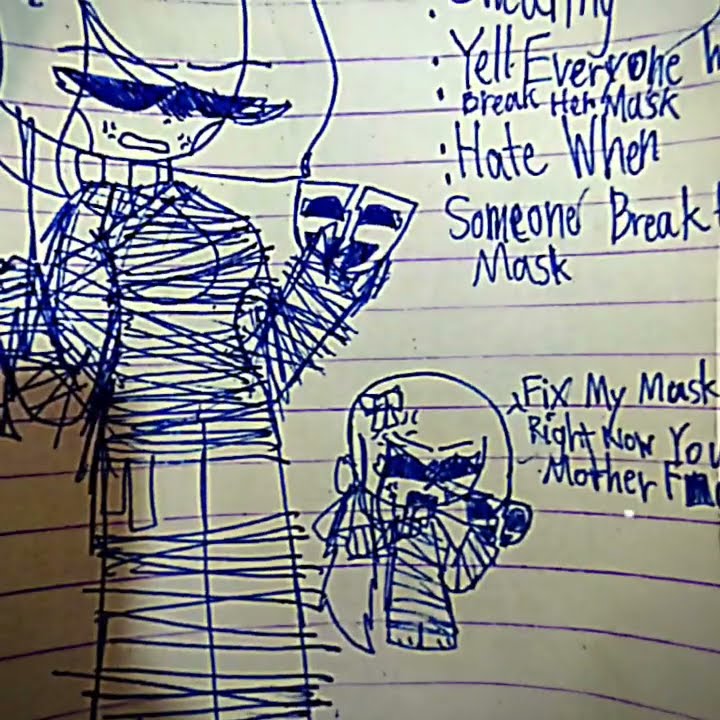 : Yell Everyone
: Break Her Mask
: Hate When
Someone Break
Mask
Fix My Mask
Right Now You
Mother F